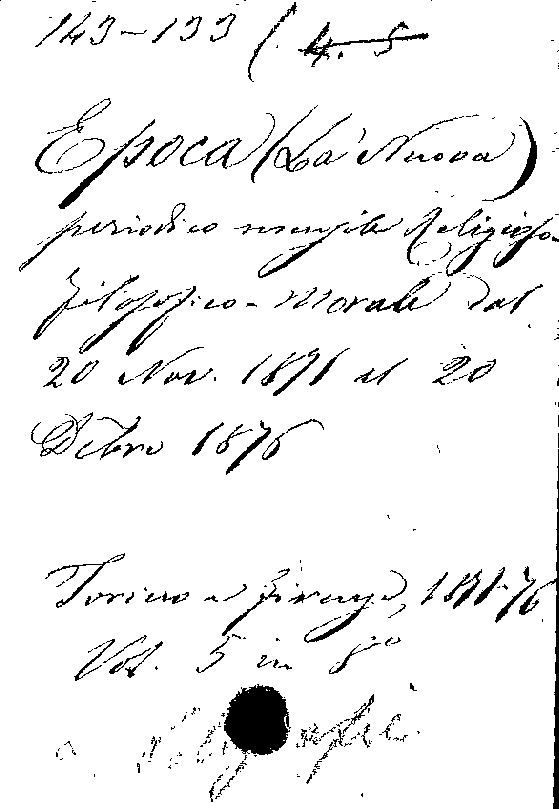 143-133 (. 4. 5
Epoca (La Nuova)
periodico mensile Religioso-
filosofico-morale dal
20 Nov. 1871 al 20
Dcbre 1876
Torino e Firenze, 1871-76
Vol. 5 in 8°